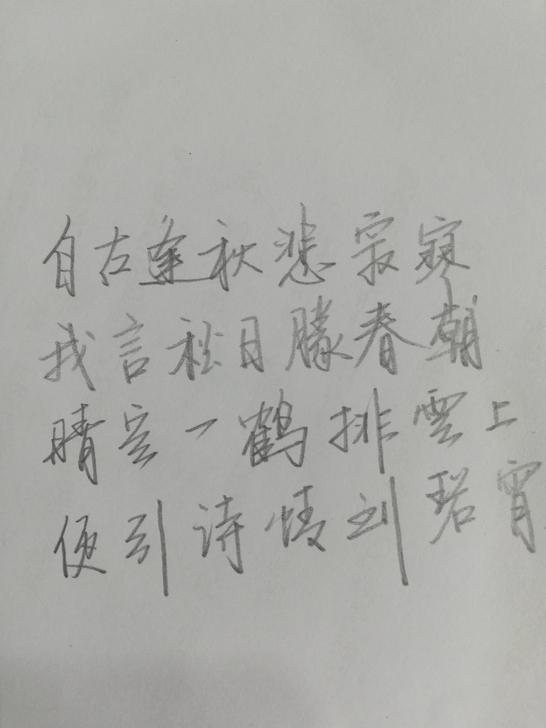 自古逢秋悲寂寥
我言秋日勝春朝
晴空一鶴排雲上
便引诗情到碧霄